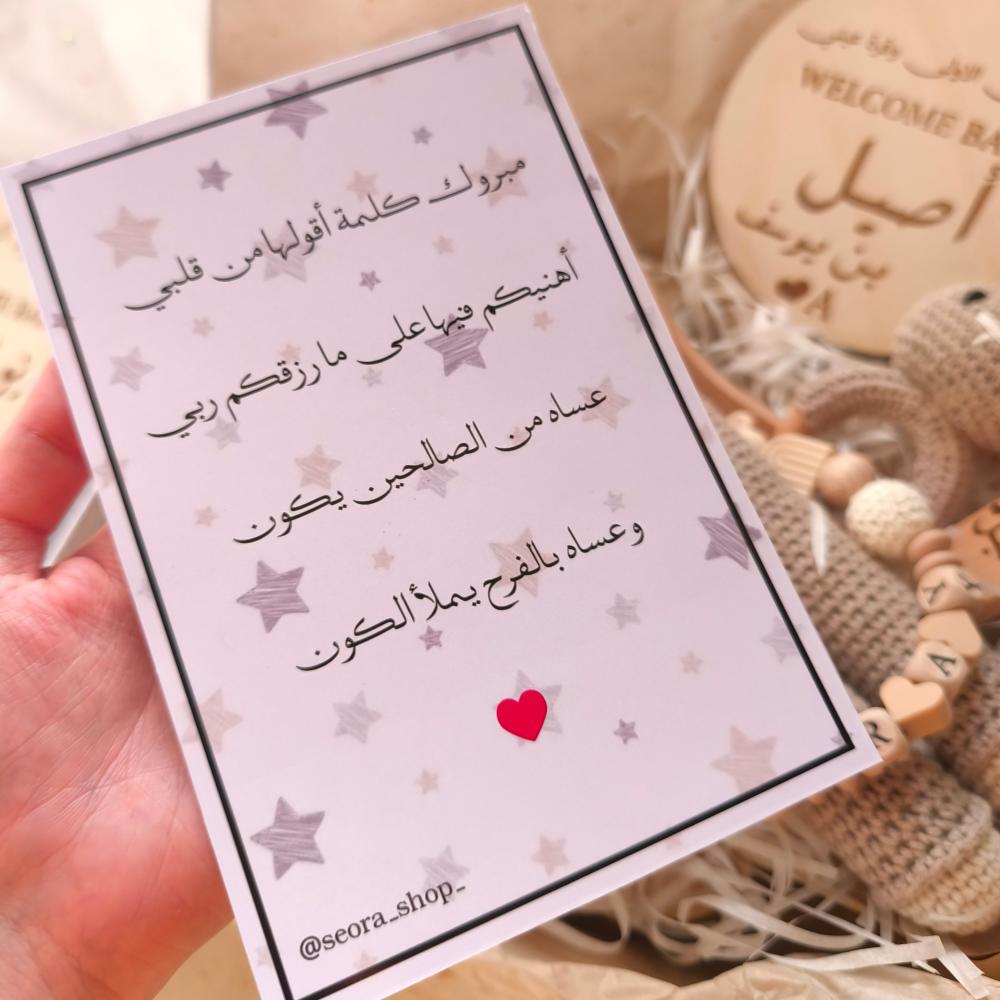 مبروك كلمة أقولها من قلبي
أهنيكم فيها على ما رزقكم ربي
عساه من الصالحين يكون
وعساه بالفرح يملأ الكون
@seora_shop_
WELCOME BA
أصيل
بن يوسف
A
A
A